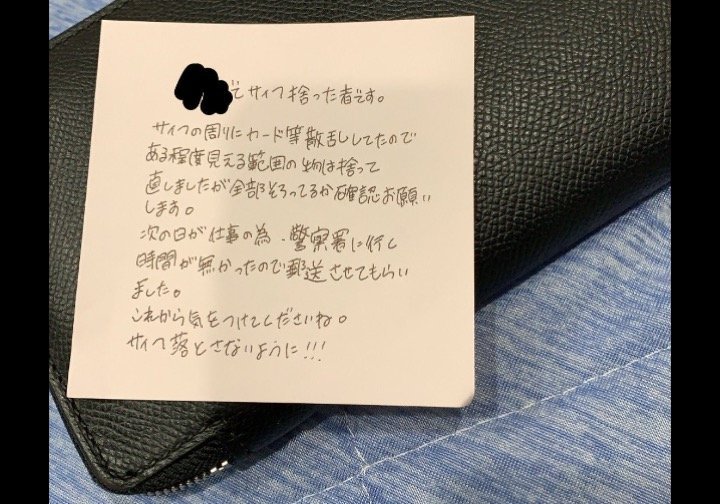 でサイフ捨った者です。
サイフの周りにカード等散乱してたので
ある程度見える範囲の物は捨って
直しましたが全部そろってるか確認お願い
します。
次の日が仕事の為、警察署に行く
時間が無かったので郵送させてもらい
ました。
これから気をつけてくださいね。
サイフ落とさないように!!!